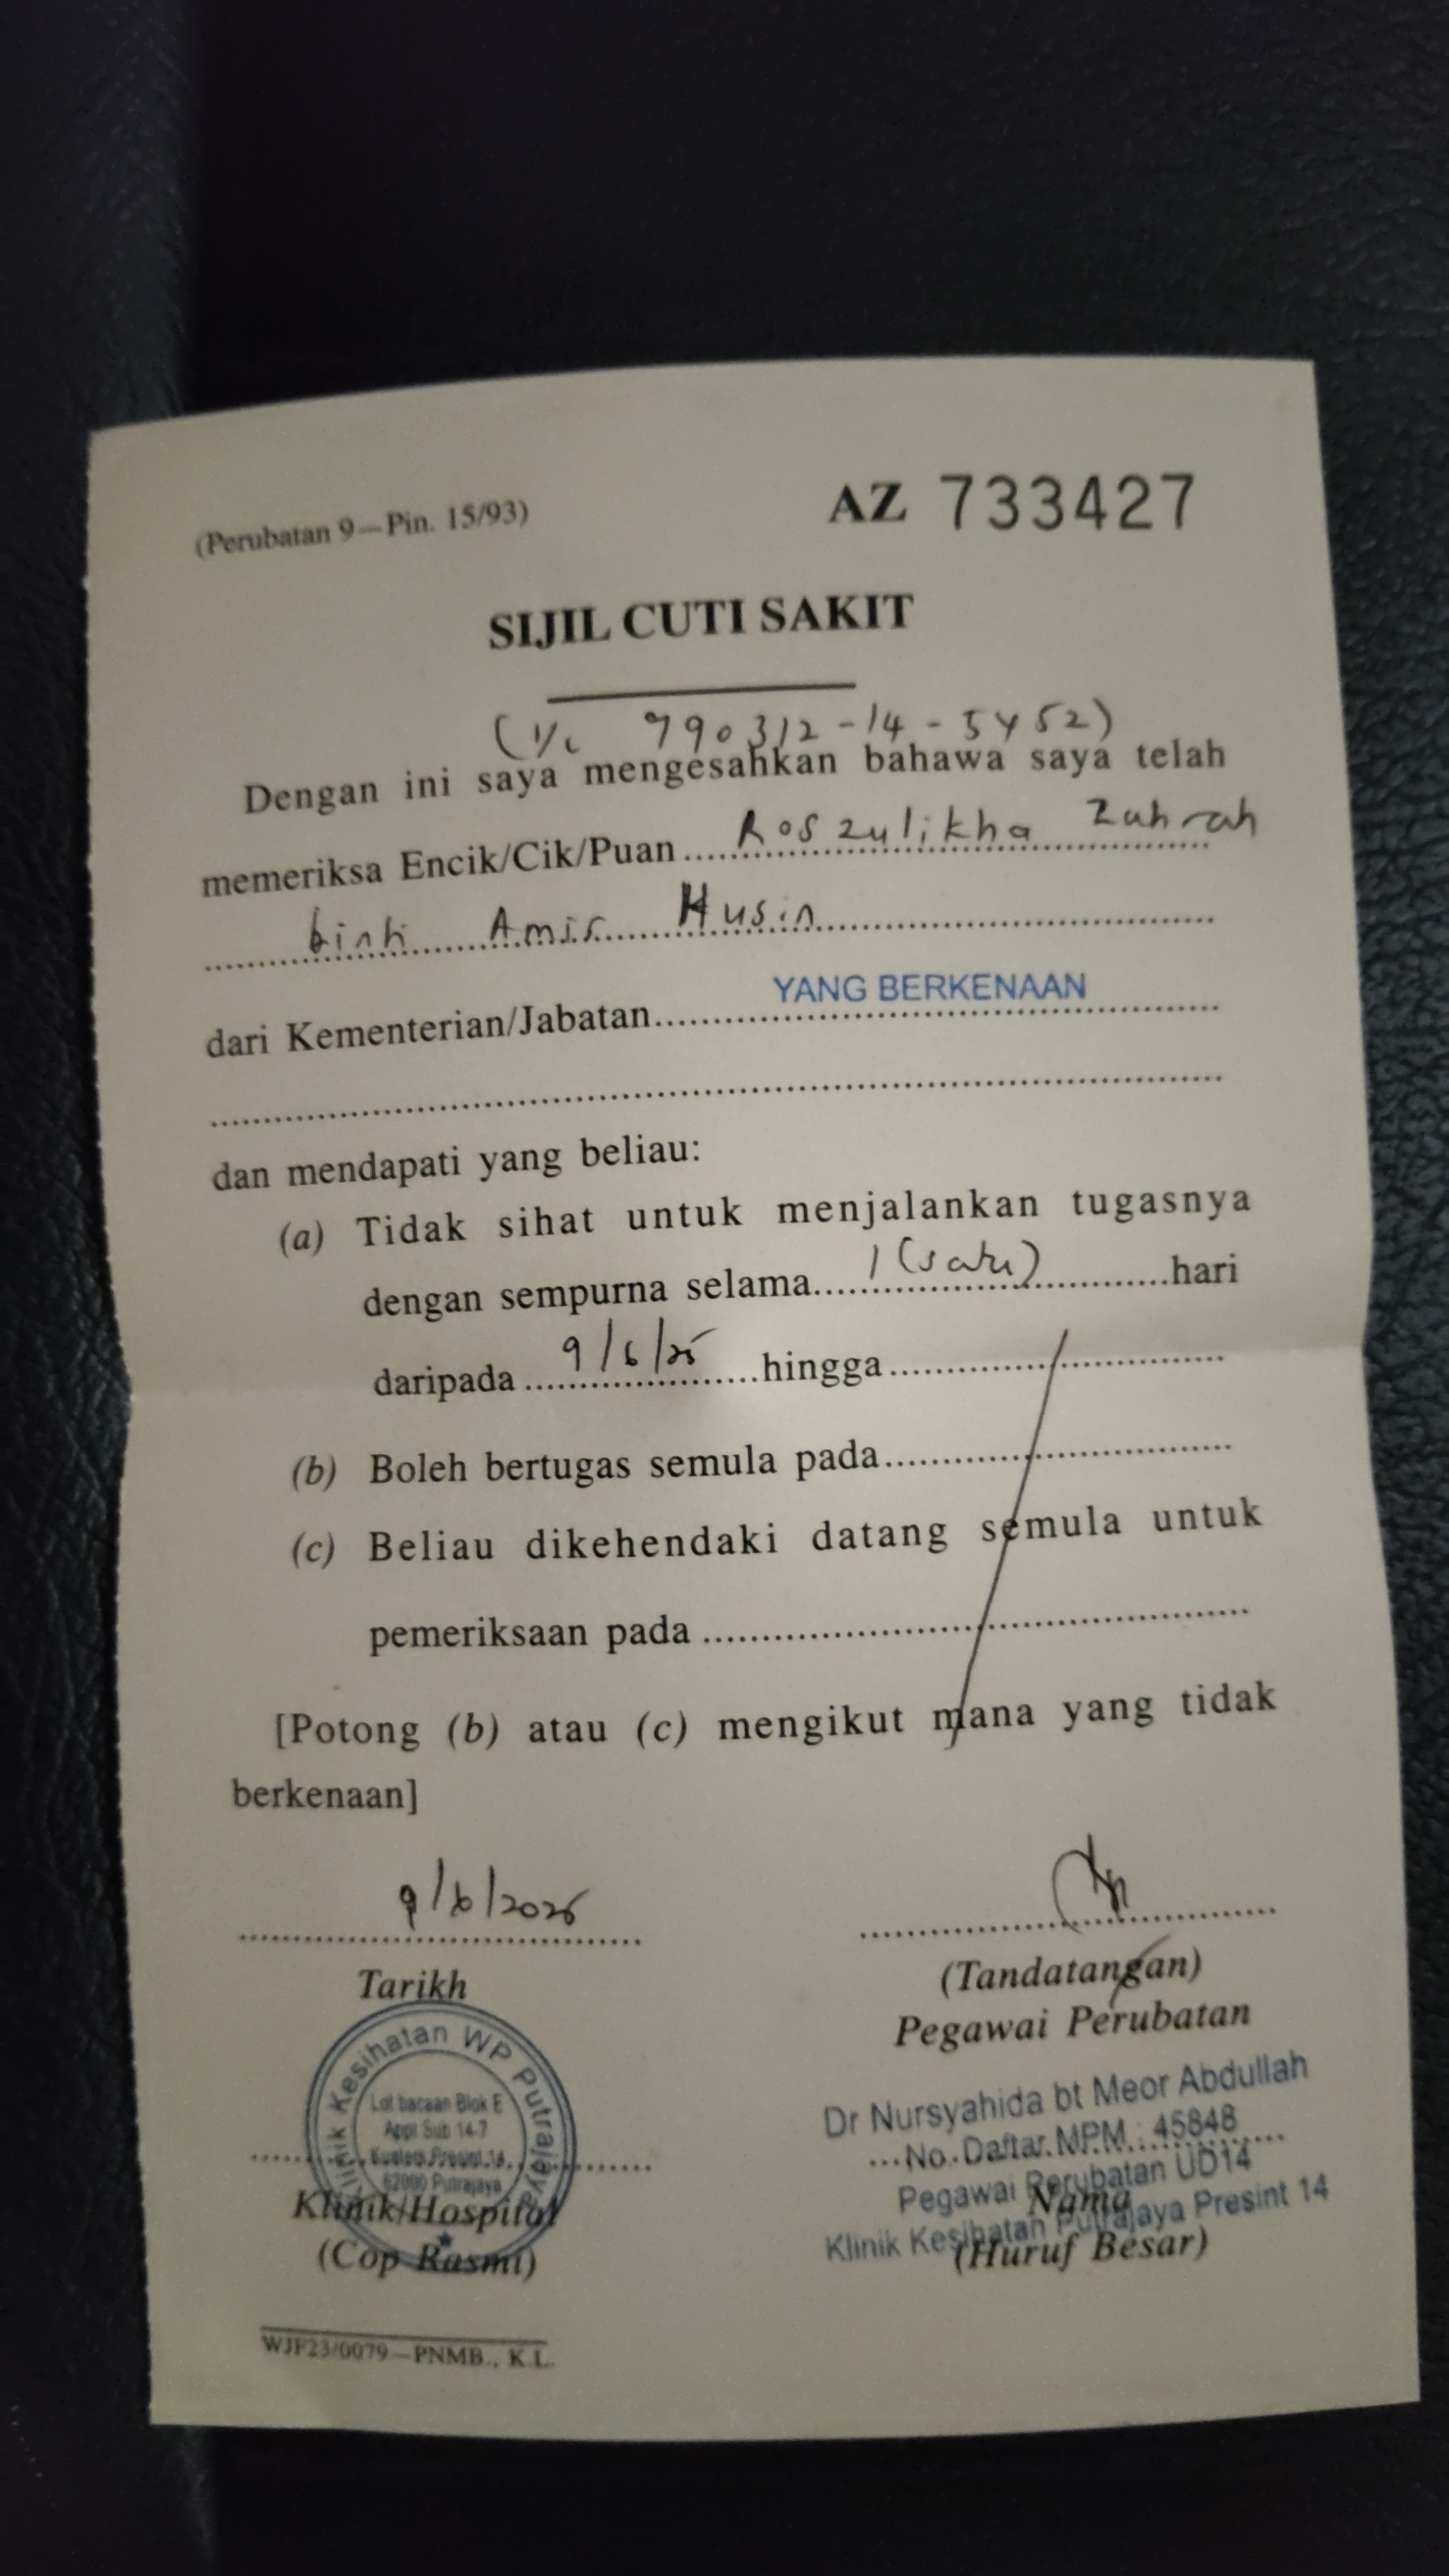 (Perubatan 9—Pin. 15/93)
AZ 733427
SIJIL CUTI SAKIT
(I/c 790312-14-5452)
Dengan ini saya mengesahkan bahawa saya telah
memeriksa Encik/Cik/Puan Roszulikha Zuhrah
binti Amir Husin
dari Kementerian/Jabatan YANG BERKENAAN
dan mendapati yang beliau:
(a) Tidak sihat untuk menjalankan tugasnya
dengan sempurna selama 1 (satu) hari
daripada 9/6/25 hingga
(b) Boleh bertugas semula pada
(c) Beliau dikehendaki datang semula untuk
pemeriksaan pada
[Potong (b) atau (c) mengikut mana yang tidak
berkenaan]
9/6/2025
Tarikh
(Tandatangan)
Pegawai Perubatan
Klinik Kesihatan WP Putrajaya
Lot bacaan Blok E
Appt Sub 14-7
Presint 14
62000 Putrajaya
Klinik/Hospital
(Cop Rasmi)
Dr Nursyahida bt Meor Abdullah
No. Daftar MPM : 45848
Pegawai Perubatan UD14
Klinik Kesihatan Putrajaya Presint 14
Nama
(Huruf Besar)
WJP23/0079—PNMB., K.L.